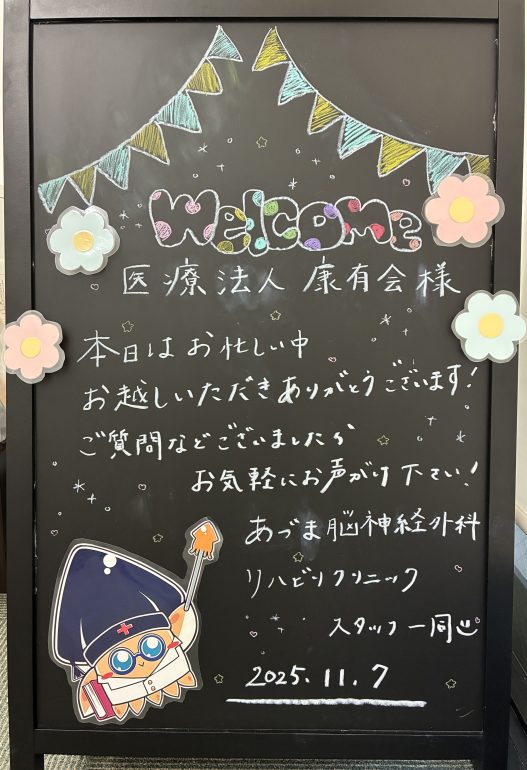 Welcome
医療法人 康有会様
本日はお忙しい中
お越しいただきありがとうございます!
ご質問などございましたら
お気軽にお声がけ下さい!
あづま脳神経外科
リハビリクリニック
スタッフ一同
2025.11.7